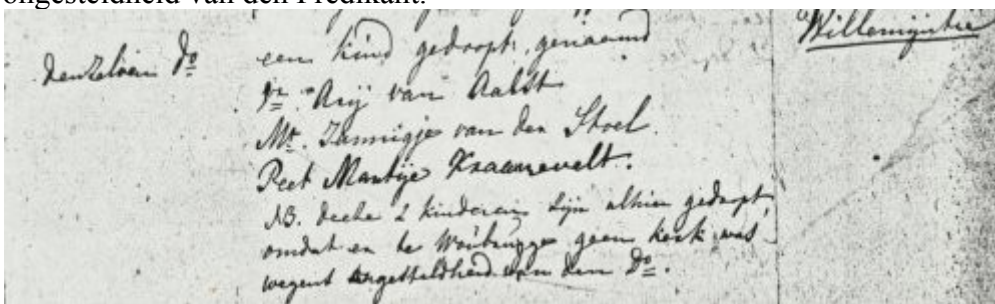 ongesteldheid van den Predikant.
denzelven do een kind gedoopt, genaamd Willemijntie
Vr. Arij van Aalst
Mr. Jannigje van den Stoel.
Peet Maatije Kraanevelt.
NB. deeze 2 kinderen zijn alhier gedoopt
omdat er te Woubrugge geen kerk was
wegens ongesteldheid van den Do.